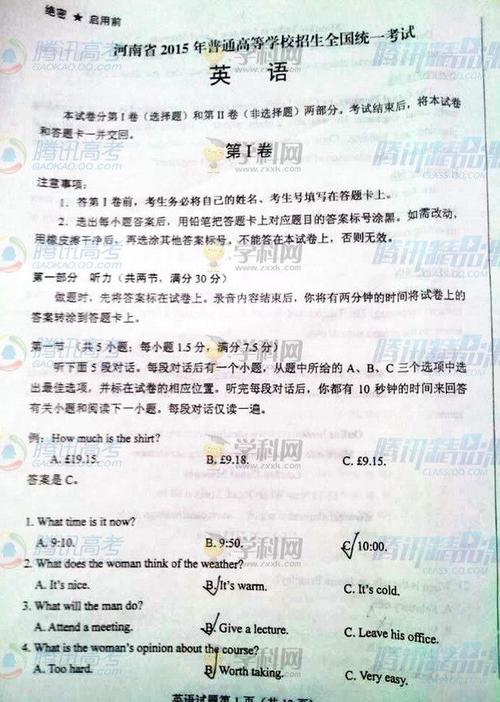 绝密 ★ 启用前
河南省 2015 年普通高等学校招生全国统一考试
英 语
本试卷分第 I 卷（选择题）和第 II 卷（非选择题）两部分。考试结束后，将本试卷
和答题卡一并交回。
第 I 卷
注意事项：
1．答第 I 卷前，考生务必将自己的姓名、考生号填写在答题卡上。
2．选出每小题答案后，用铅笔把答题卡上对应题目的答案标号涂黑。如需改动，
用橡皮擦干净后，再选涂其他答案标号。不能答在本试卷上，否则无效。
第一部分 听力（共两节，满分 30 分）
做题时，先将答案标在试卷上。录音内容结束后，你将有两分钟的时间将试卷上的
答案转涂到答题卡上。
第一节（共 5 小题；每小题 1.5 分，满分 7.5 分）
听下面 5 段对话。每段对话后有一个小题，从题中所给的 A、B、C 三个选项中选
出最佳选项，并标在试卷的相应位置。听完每段对话后，你都有 10 秒钟的时间来回答
有关小题和阅读下一小题。每段对话仅读一遍。
例：How much is the shirt?
A. £19.15. B. £9.18. C. £9.15.
答案是 C。
1. What time is it now?
A. 9:10. B. 9:50. C. 10:00.
2. What does the woman think of the weather?
A. It's nice. B. It's warm. C. It's cold.
3. What will the man do?
A. Attend a meeting. B. Give a lecture. C. Leave his office.
4. What is the woman's opinion about the course?
A. Too hard. B. Worth taking. C. Very easy.
英语试题第 1 页（共 12 页）
腾讯高考
GAOKAO.QQ.COM
学科网
www.zxxk.com
腾讯精品课
CLASS.QQ.COM